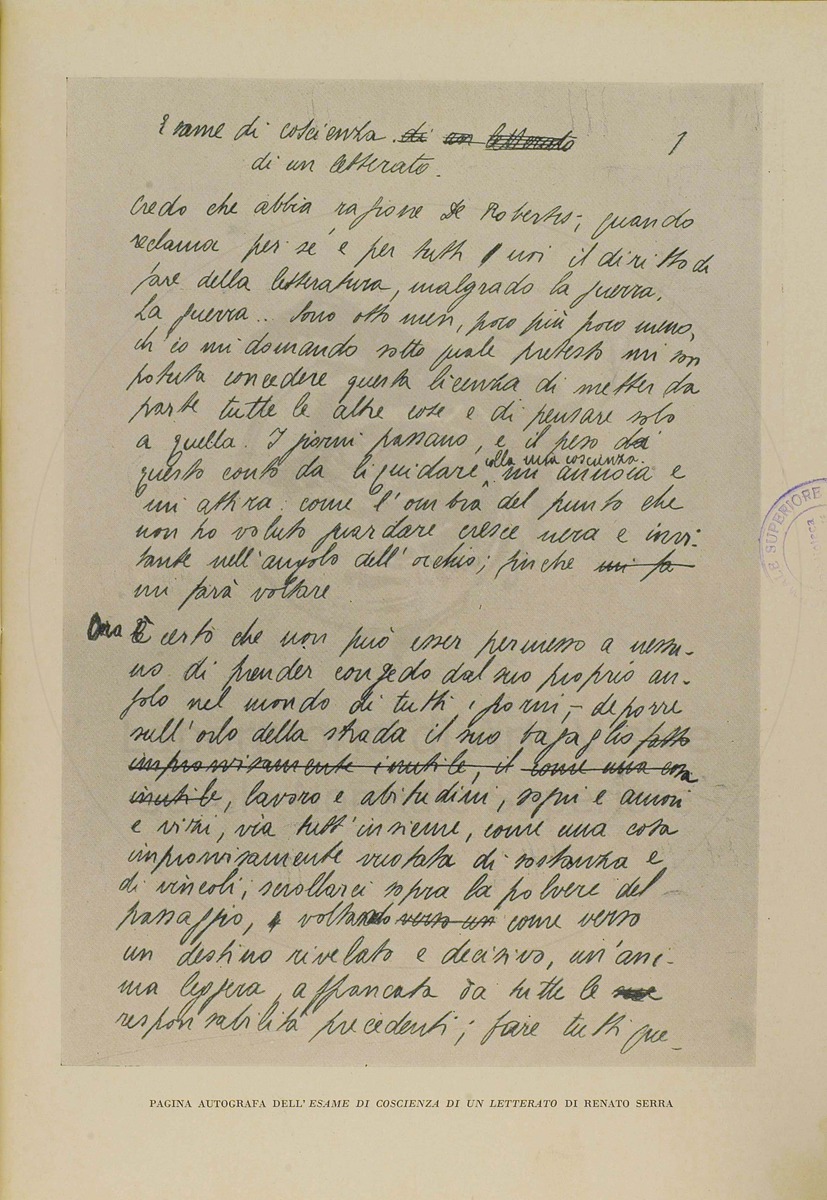 Esame di coscienza di un letterato 1
di un letterato.
Credo che abbia ragione De Robertis; quando
reclama per sé e per tutti noi il diritto di
fare della letteratura, malgrado la guerra.
La guerra... Sono otto mesi, poco più poco meno,
ch'io mi domando sotto quale pretesto mi son
potuta concedere questa licenza di metter da
parte tutte le altre cose e di pensare solo
a quella. I giorni passano, e il peso di
questo conto da liquidare colla mia coscienza mi annoia e
mi attira: come l'ombra del punto che
non ho voluto guardare cresce nera e invi-
tante nell'angolo dell'occhio; finche mi fa
mi farà voltare
Ora È certo che non può esser permesso a nessu-
no di prender congedo dal suo proprio an-
golo nel mondo di tutti i giorni; deporre
sull'orlo della strada il suo bagaglio fatto
improvvisamente inutile, il come una cosa
inutile, lavoro e abitudini, sogni e amori
e vizi, via tutt'insieme, come una cosa
improvvisamente vuotata di sostanza e
di vincoli; scrollarci sopra la polvere del
passaggio, voltando verso un come verso
un destino rivelato e decisivo, un'ani-
ma leggera, affrancata da tutte le sue
responsabilità precedenti; fare tutti que-
PAGINA AUTOGRAFA DELL'ESAME DI COSCIENZA DI UN LETTERATO DI RENATO SERRA
LE SUPERIORE